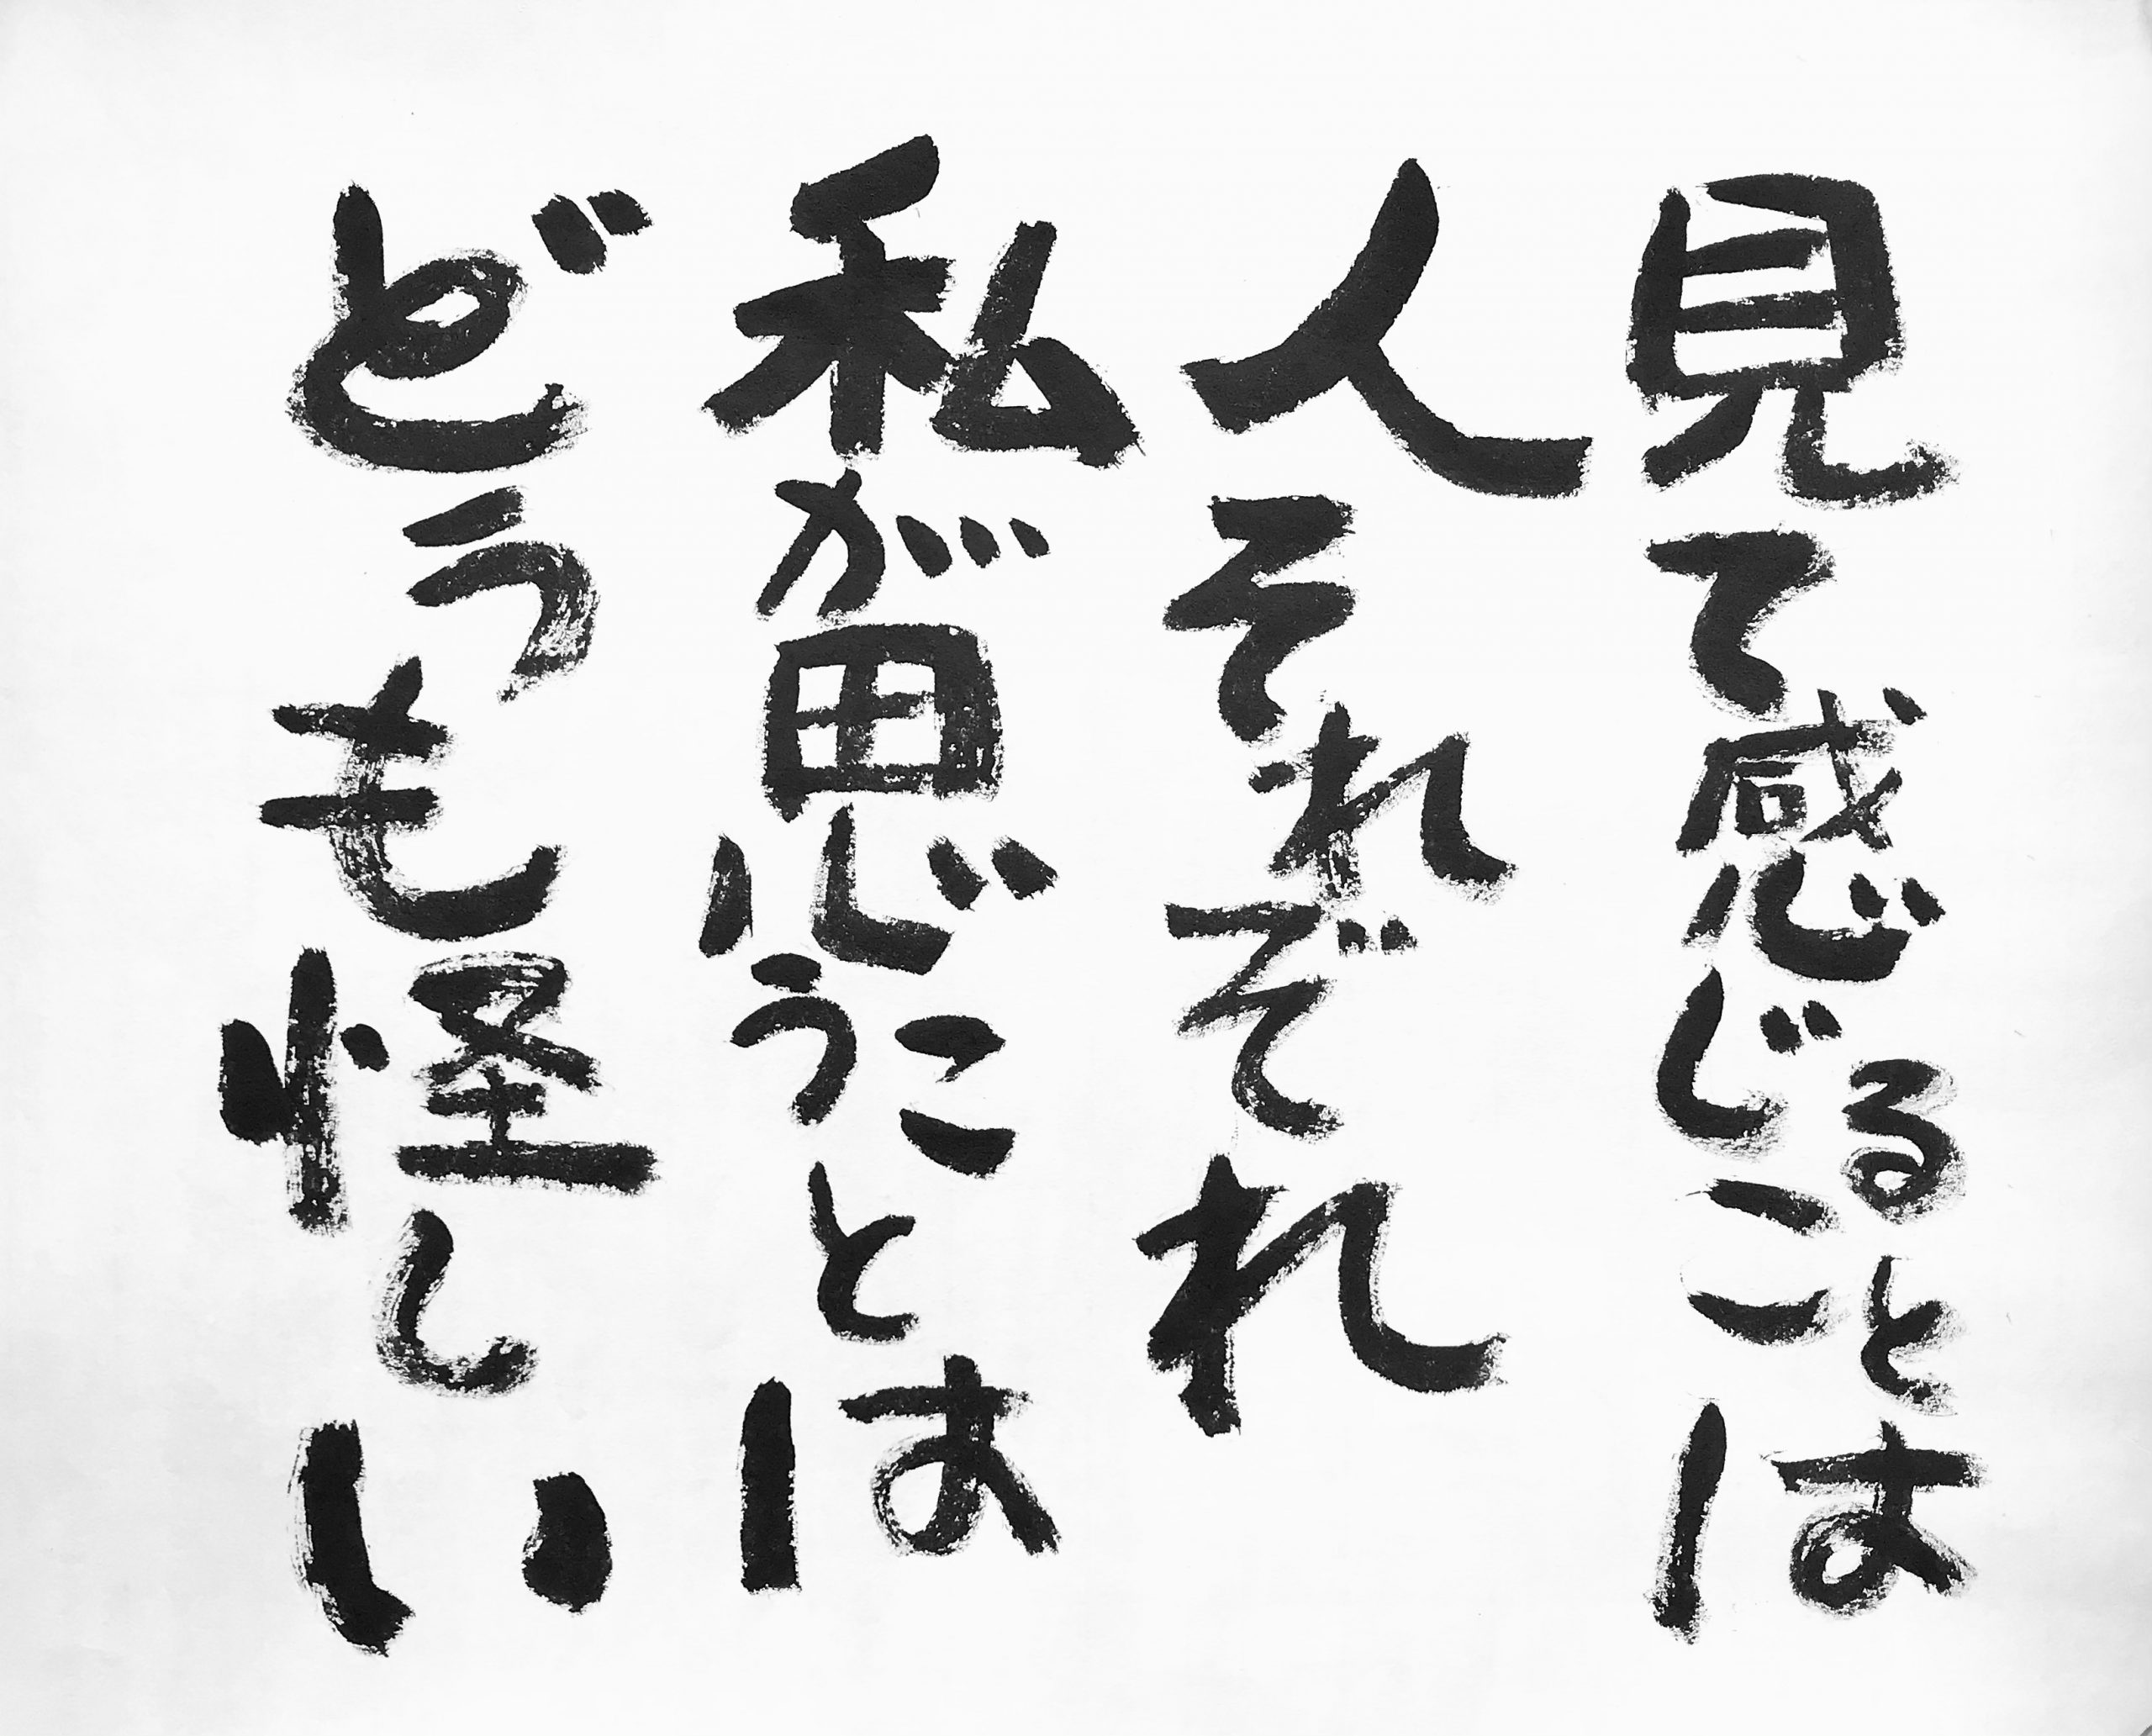 見て感じることは
人それぞれ
私が思うことは
どうも怪しい